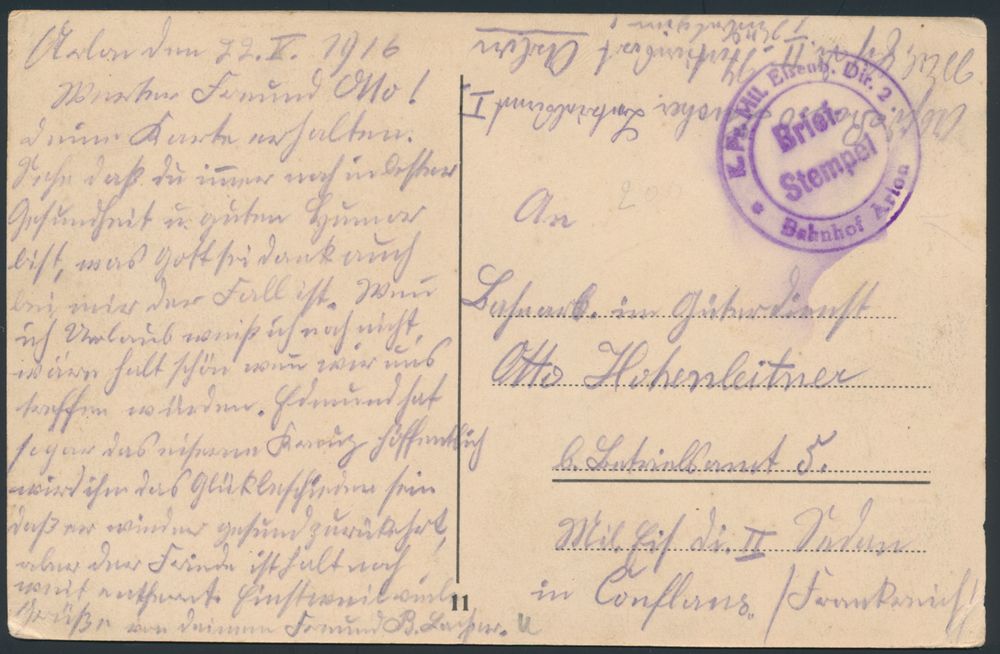 Arlon den 22. V. 1916
Werter Freund Otto!
deine Karte erhalten.
Sehe daß du immer noch in bester
Gesundheit u. guten Humor
bist, was Gott sei dank auch
bei mir der Fall ist. Wenn
ich Urlaub weiß ich noch nicht,
wäre halt schön wenn wir uns
treffen würden. Edmund hat
sogar das eiserne Kreuz hoffentlich
wird ihm das Glük beschieden sein
daß er wieder gesund zurükkehrt,
aber der Friede ist halt noch
weit entfernt. Einstweil viele
Grüße von deinem Freund B.
11
Mil. Eis. Di. II
Arlon
K. Pr. Mil. Eisenb. Dir. 2.
Brief-
Stempel
* Bahnhof Arlon
An
Bahnarb. im Güterdienst
Otto Hohenleitner
b. Betriebsamt 5.
Mil. Eis. Di. II Sedan
in Conflans. / Frankreich /